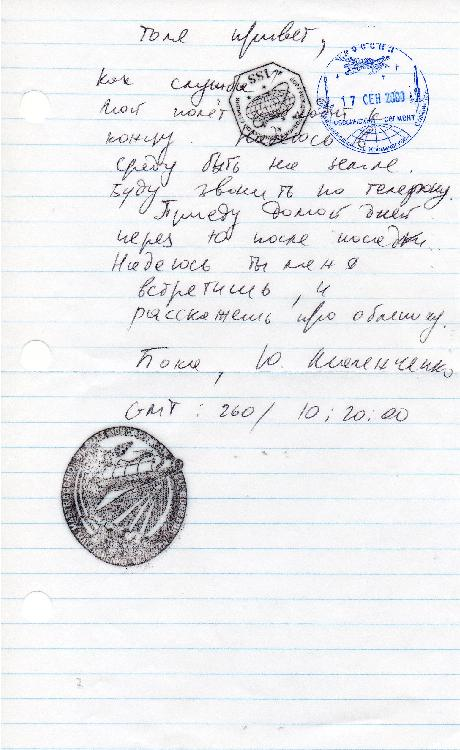 Толя привет,
ISS
РОССИЯ
Как служба
17 СЕН 2000
Мой полёт подходит к
СЕГМЕНТ
концу. Надеюсь в
среду быть на земле.
Буду звонить по телефону.
Приеду домой дней
через 10 после посадки.
Надеюсь ты меня
встретишь, и
расскажешь про
Пока, Ю. Маленченко
GMT: 260/ 10:20:00